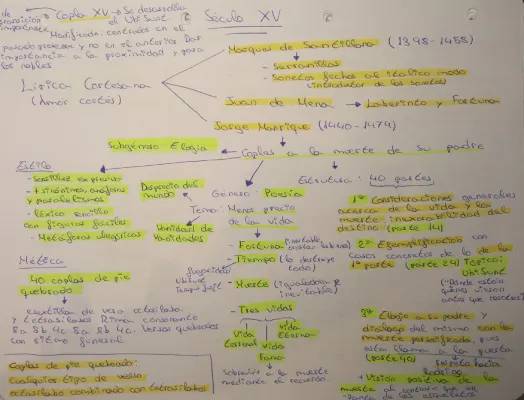 de transición
importante
Copla XV → Se desarrolla
el Ubi Sunt
Modificado: centrados en el
pasado y no en el anterior. Dar
importancia a la proximidad y para
los nobles
Siglo XV
Lírica Cortesana
(Amor cortés)
Marqués de Santillana (1398-1458)
- Serranillas
- Sonetos fechos al itálico modo
(introductor de los sonetos)
Juan de Mena → Laberinto y Fortuna
Jorge Manrique (1440-1479)
Subgénero Elegía
Coplas a la muerte de su padre
Estilo
- Sencillez expresiva
- + sinónimos, anáforas
y paralelismos
- léxico sencillo
con figuras fáciles
- Metáforas alegóricas
Métrica
40 coplas de pie
quebrado
sextilla de verso octosílabo
y tetrasílabos. Rima consonante
8a 8b 4c 8a 8b 4c. Versos quebrados
con ritmo funeral
Coplas de pie quebrado:
cualquier tipo de verso
octosílabo combinado con tetrasílabo
Desprecio del
mundo
Vanidad de
vanidades
Género: Poesía
Tema: Menos precio
de la vida
- Fortuna
- Tiempo (lo destruye
todo)
- Muerte (igualadora e
inevitable)
- Tres vidas
Vida
terrenal
Vida
Fama
Vida
Eterna
Sobrevivir a la muerte
mediante el recuerdo.
Estructura: 40 partes
1ª Consideraciones generales
acerca de la vida y la
muerte inexorabilidad del
destino (parte 14)
2ª Ejemplificación con
casos concretos de lo de la
1ª parte (parte 24) Tópico:
Ubi Sunt
"Dónde están
quienes vivieron
antes que nosotros"
3ª Elogio a su padre y
diálogo del mismo con la
muerte personificada, pues
esta llama a la puerta
(parte 40)
+ Visión positiva de la
muerte al contrario que en